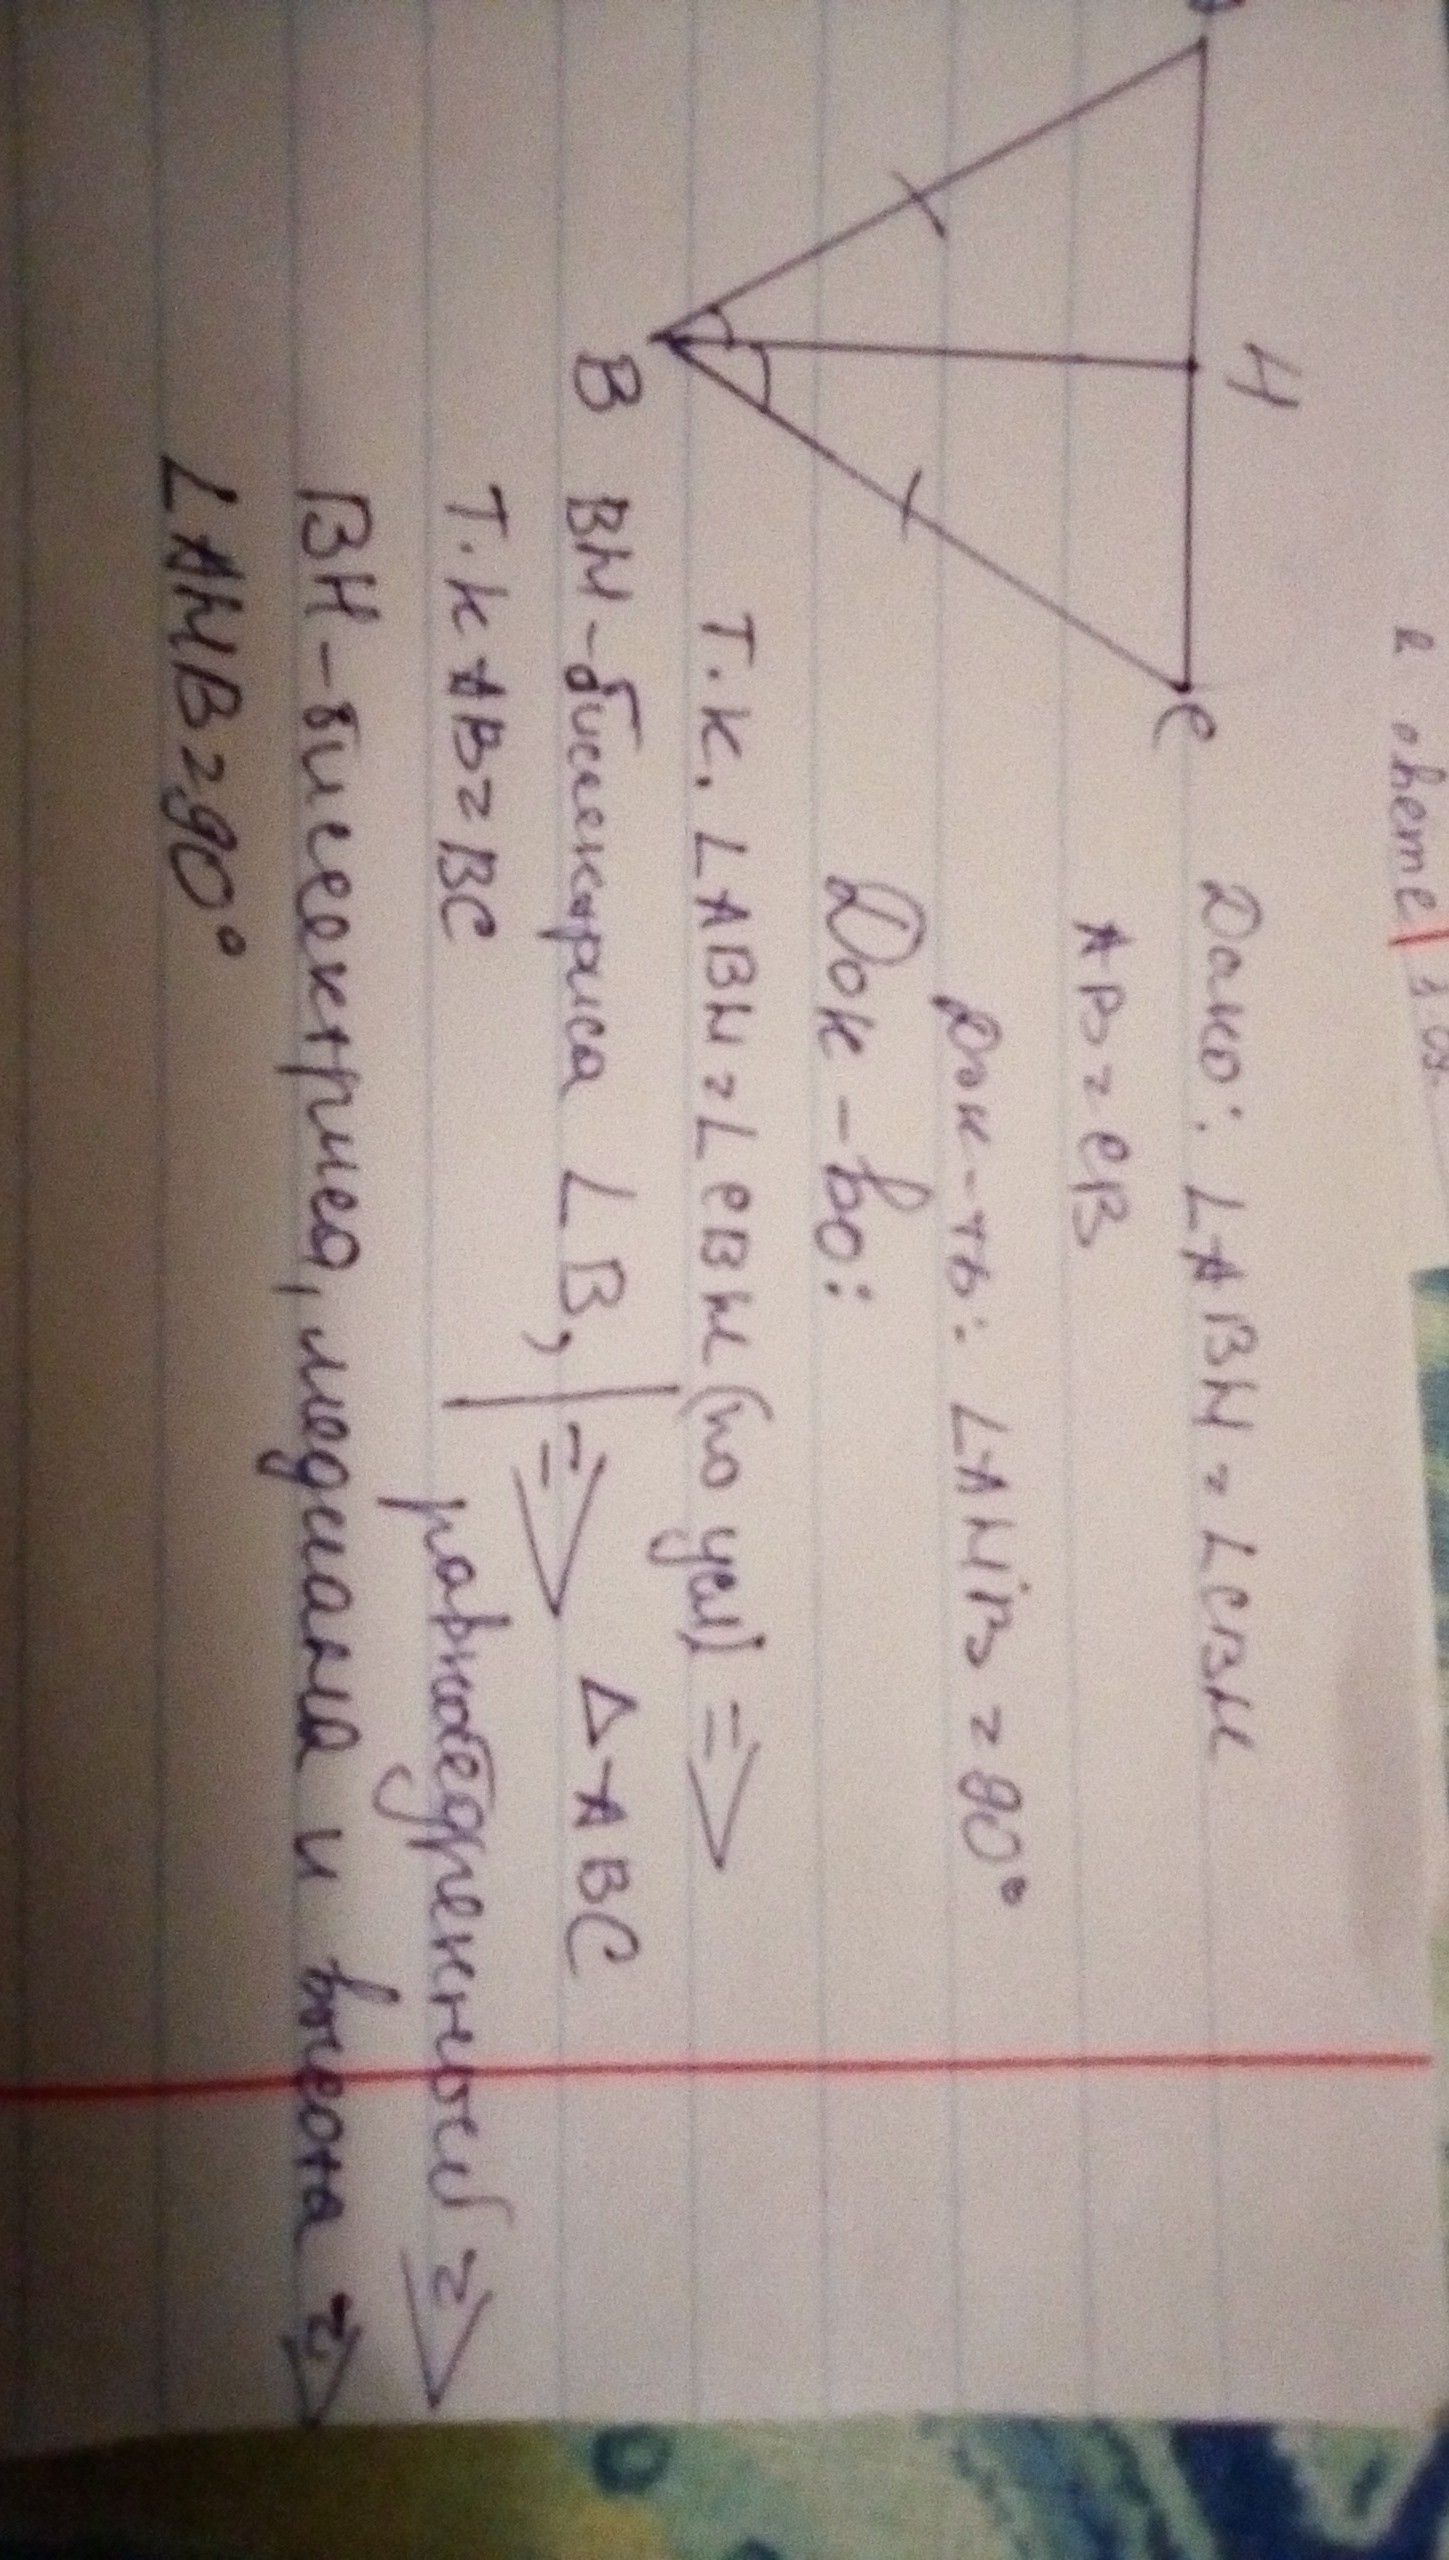 H
C
B
Дано: ∠ABH = ∠CBH
AB = CB
Док-ть: ∠AHB = 90°
Док-во:
Т.к. ∠ABH = ∠CBH (по усл) =>
BH - биссектриса ∠B, | => ΔABC
Т.к AB = BC равнобедренный =>
BH - биссектриса, медиана и высота =>
∠AHB = 90°